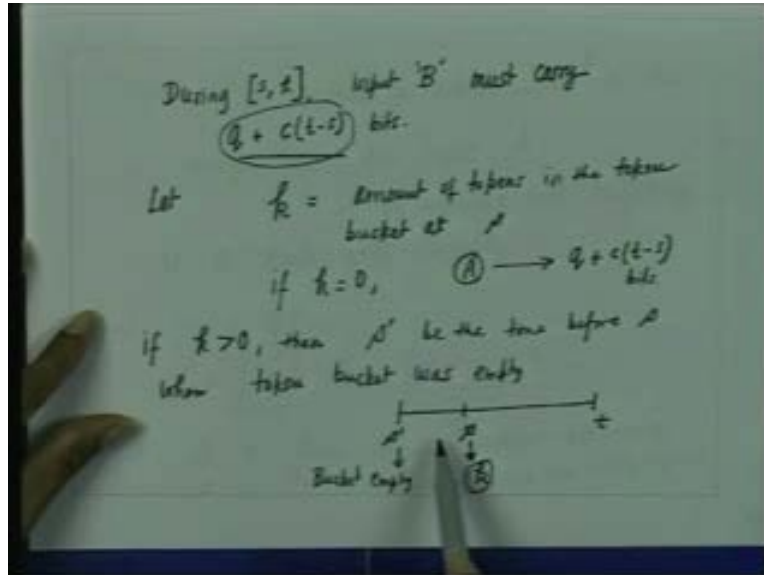 During [s, t], input 'B' must carry
q + c(t-s) bits.
Let k = amount of tokens in the token
bucket at s
if k = 0, A → q + c(t-s)
bits
if k > 0, then s' be the time before s
when token bucket was empty
s' s t
Bucket empty k